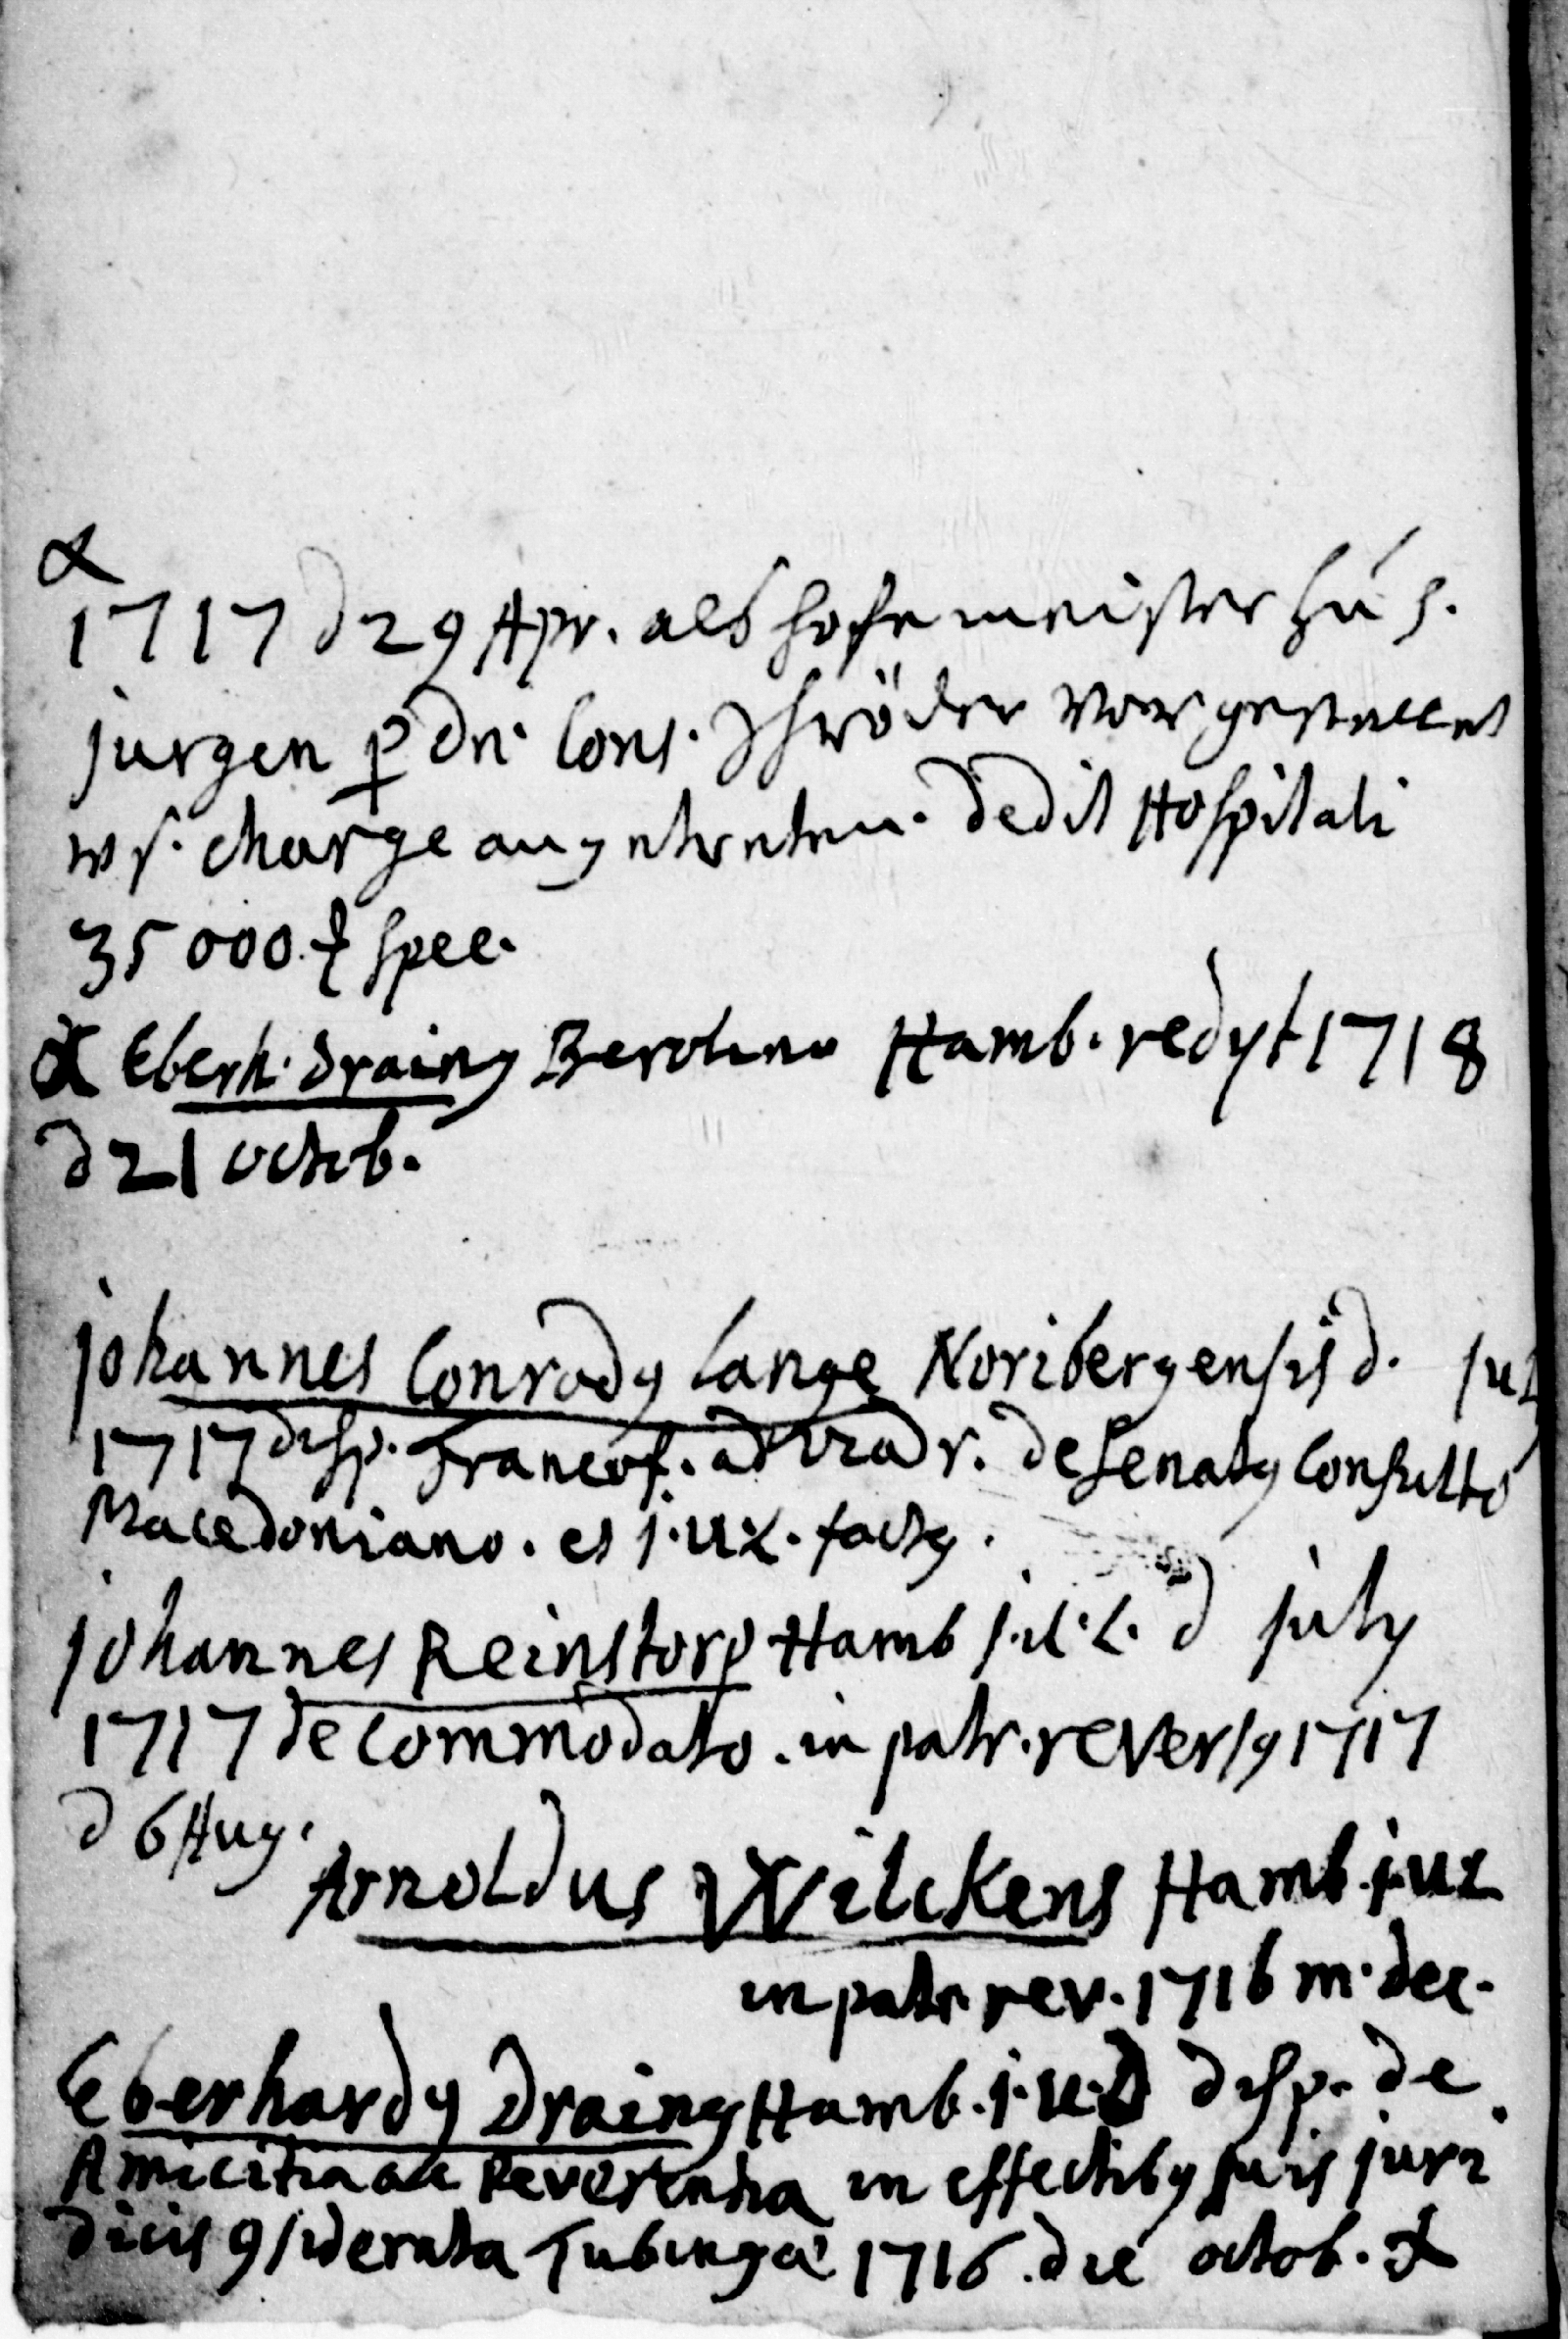 α
1717 d 29 Apr. als hofemeister zu S.
jurgen ꝑ Dn. Cons. Schröder vorgestellet
charge angetreten. dedit Hospitali
35000 spec.
Eberh. Draing Berolino Hamb. redyt 1718
d 21 octob.
johannes Conrady Lange Noribergensis d. jul
1717 disp. Francof. ad Viadr. de Senaty Consulto
Macedoniano. et j.u.L. facty.
johannes Reinstorp Hamb j.u.L. d july
1717 de commodato. in patr. reversy 1717
d 6 Aug.
Arnoldus Wilckens Hamb. j.u.L
in patr. rev. 1716 m. dec.
Eberhardy Drainy Hamb. j.u.D disp. de
Amicitia ac Reverentia in effectiby suis juri
dicis 9siderata Tubingæ 1716. die octob. α